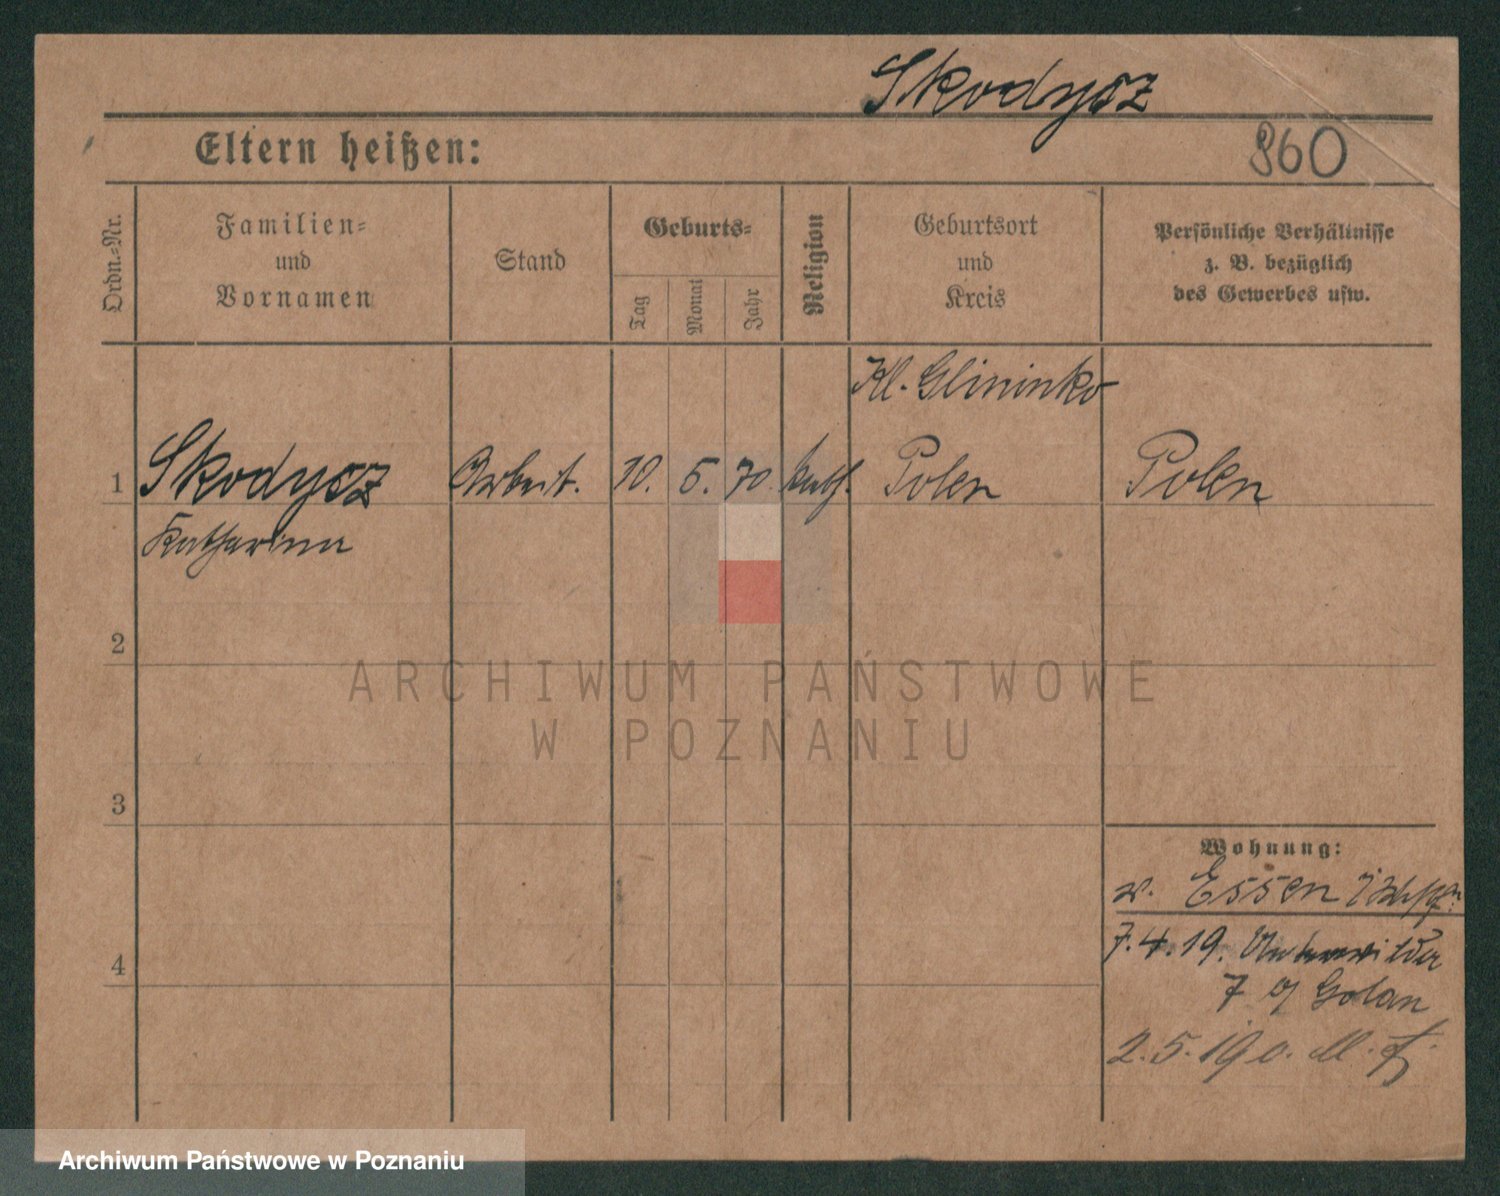 Skodysz
Eltern heißen:
860
Ordn.-Nr.
Familien-
und
Vornamen
Stand
Geburts-
Tag
Monat
Jahr
Religion
Geburtsort
und
Kreis
Persönliche Verhältnisse
z. B. bezüglich
des Gewerbes usw.
Kl. Glininko
1 Skodysz Arbeit. 10. 5. 70. kath. Polen Polen
Katharina
2
ARCHIWUM PAŃSTWOWE
W POZNANIU
3
Wohnung:
v. Essen
7.4.19.
4
7 Golan
2.5.19
Archiwum Państwowe w Poznaniu